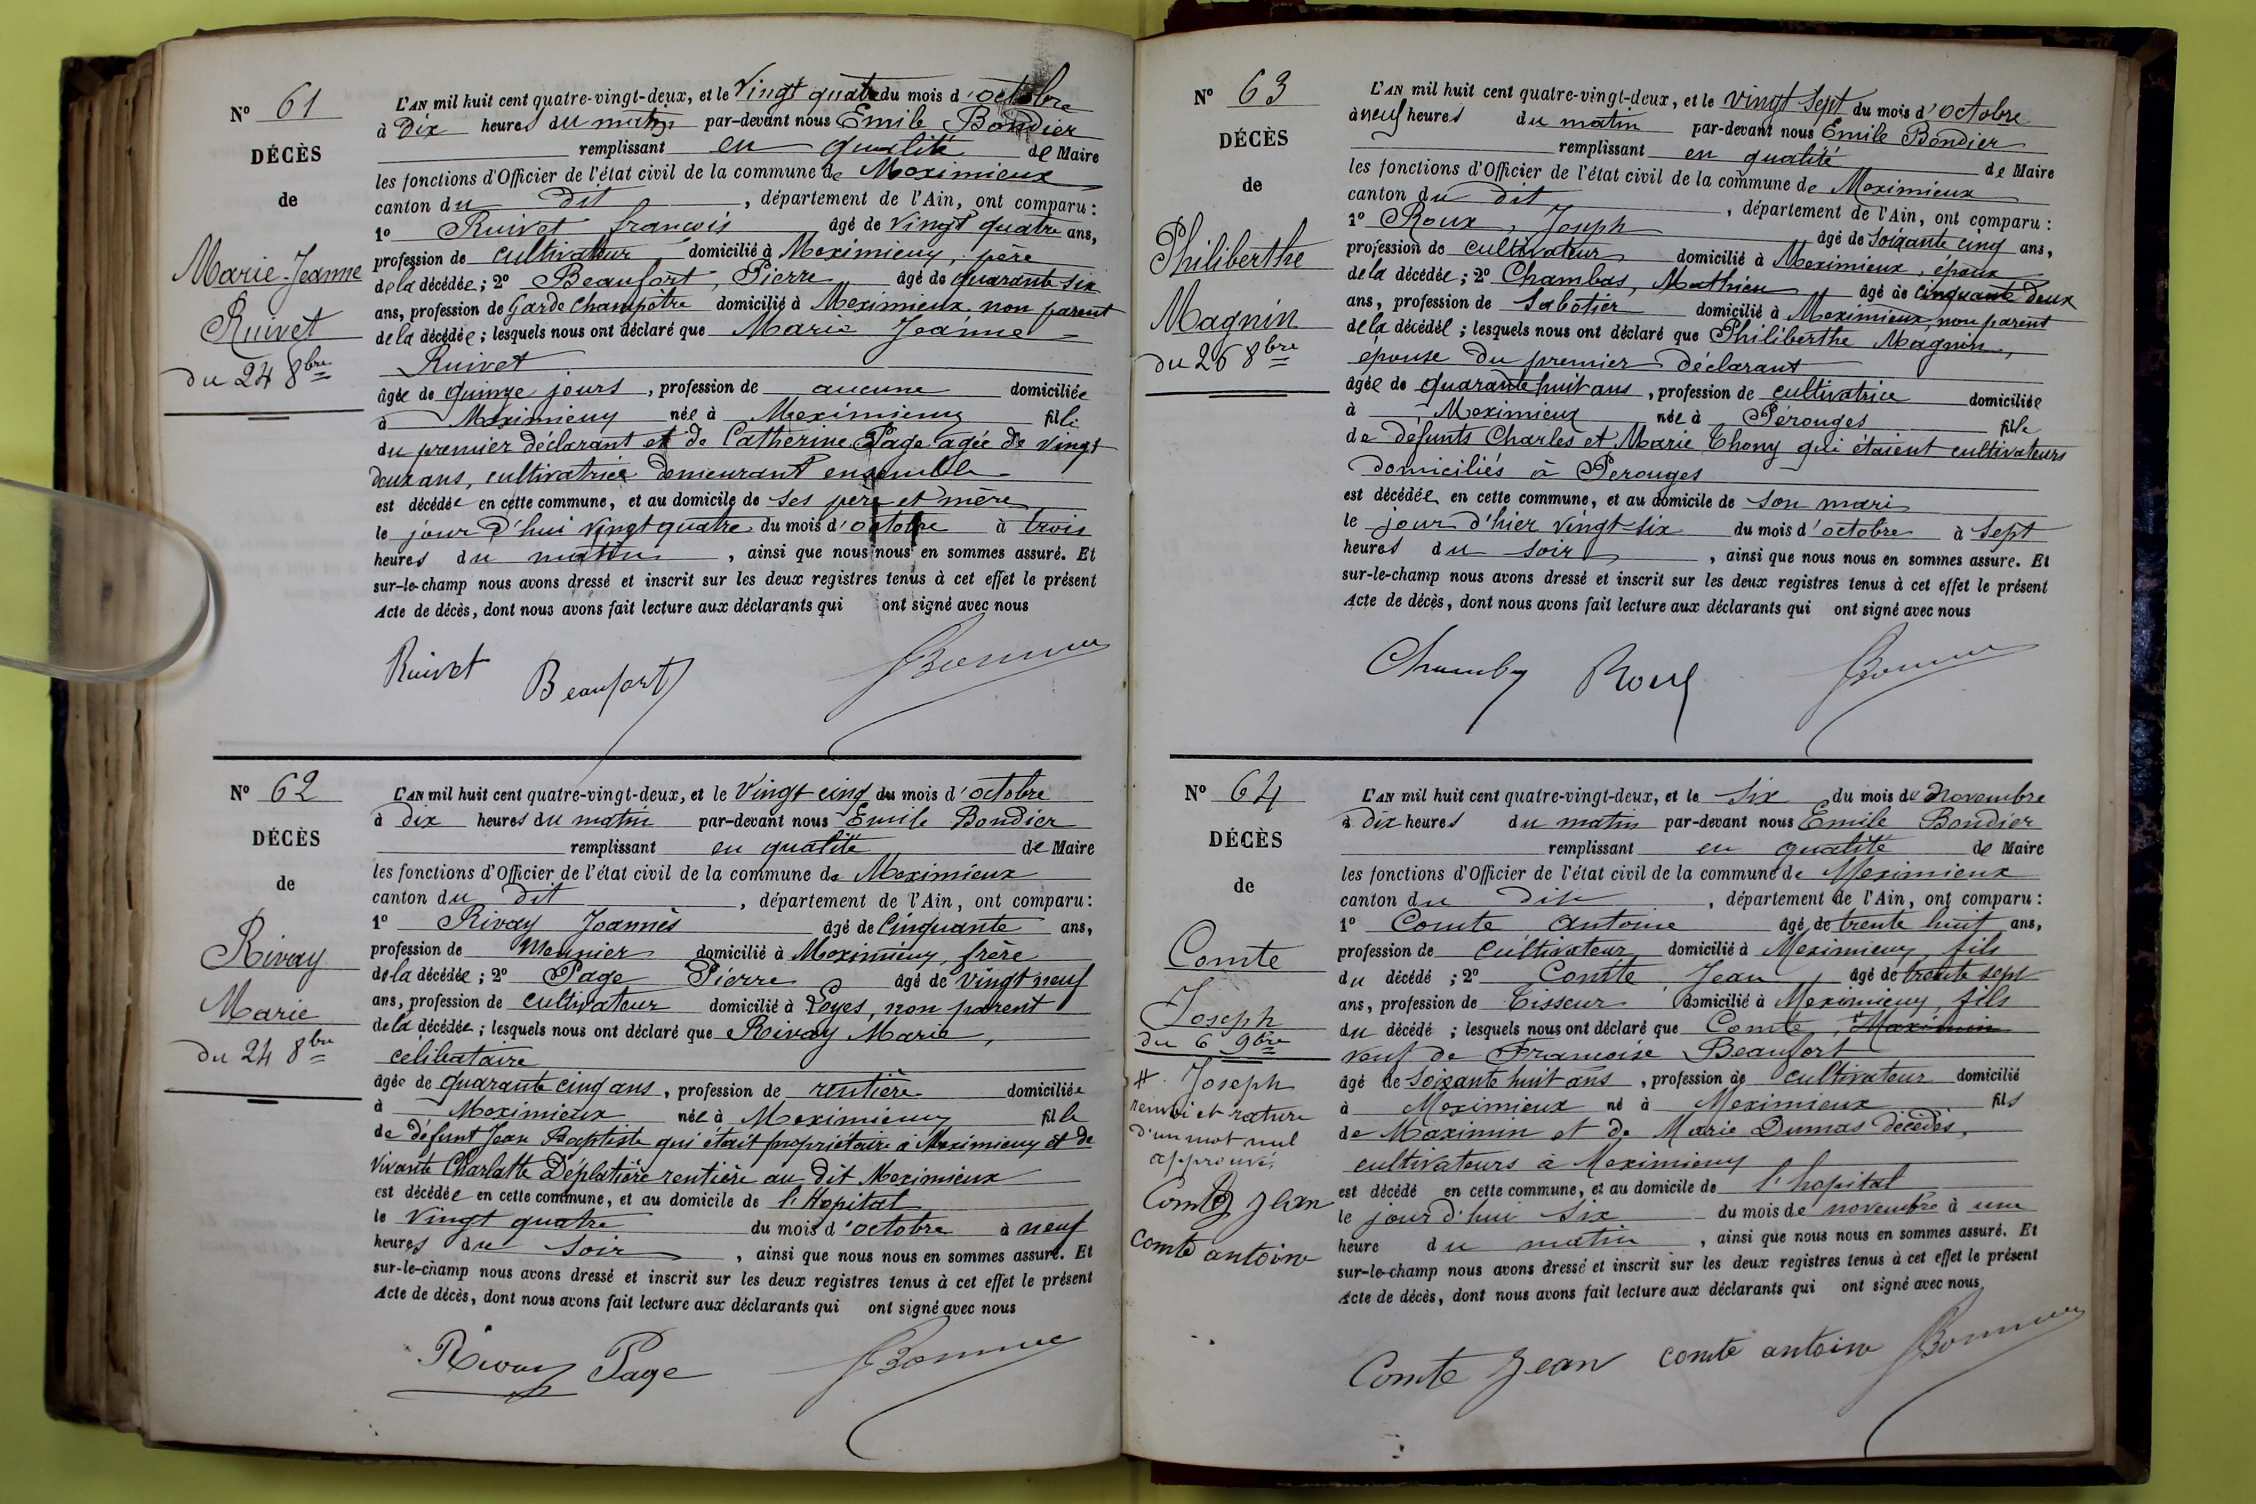 N° 61
DÉCÈS
de
Marie-Jeanne
Ruivet
du 24 8bre
L'AN mil huit cent quatre-vingt-deux, et le Vingt quatre du mois d'octobre
à Dix heures du matin par-devant nous Emile Bondier
remplissant en qualité de Maire
les fonctions d'Officier de l'état civil de la commune de Meximieux
canton du dit, département de l'Ain, ont comparu :
1° Ruivet françois âgé de vingt quatre ans,
profession de cultivateur domicilié à Meximieux, père
de la décédée ; 2° Beaufort, Pierre âgé de quarante six
ans, profession de Garde Champêtre domicilié à Meximieux, non parent
de la décédée ; lesquels nous ont déclaré que Marie Jeanne
Ruivet
âgée de quinze jours, profession de aucune domiciliée
à Meximieux née à Meximieux fille
du premier déclarant et de Catherine Page agée de vingt
deux ans, cultivatrice demeurant ensemble
est décédée en cette commune, et au domicile de ses père et mère
le jour d'hui vingt quatre du mois d'octobre à trois
heures du matin, ainsi que nous nous en sommes assuré. Et
sur-le-champ nous avons dressé et inscrit sur les deux registres tenus à cet effet le présent
Acte de décès, dont nous avons fait lecture aux déclarants qui ont signé avec nous
Ruivet Beaufort
N° 62
DÉCÈS
de
Rivay
Marie
du 24 8bre
L'AN mil huit cent quatre-vingt-deux, et le Vingt cinq du mois d'octobre
à dix heures du matin par-devant nous Emile Bondier
remplissant en qualité de Maire
les fonctions d'Officier de l'état civil de la commune de Meximieux
canton du dit, département de l'Ain, ont comparu :
1° Rivay Joannès âgé de Cinquante ans,
profession de Meunier domicilié à Meximieux, frère
de la décédée ; 2° Page Pierre âgé de vingt neuf
ans, profession de cultivateur domicilié à Loyes, non parent
de la décédée ; lesquels nous ont déclaré que Rivay Marie,
celibataire
âgée de quarante cinq ans, profession de rentière domiciliée
à Meximieux née à Meximieux fille
de défunt Jean Baptiste qui était propriétaire à Meximieux et de
vivante Charlotte Déplatière rentière au dit Meximieux
est décédée en cette commune, et au domicile de l'Hopital
le Vingt quatre du mois d'octobre à neuf
heures du soir, ainsi que nous nous en sommes assuré. Et
sur-le-champ nous avons dressé et inscrit sur les deux registres tenus à cet effet le présent
Acte de décès, dont nous avons fait lecture aux déclarants qui ont signé avec nous
Rivay Page
N° 63
DÉCÈS
de
Philiberthe
Magnin
du 26 8bre
L'AN mil huit cent quatre-vingt-deux, et le vingt sept du mois d'octobre
à neuf heures du matin par-devant nous Emile Bondier
remplissant en qualité de Maire
les fonctions d'Officier de l'état civil de la commune de Meximieux
canton du dit, département de l'Ain, ont comparu :
1° Roux, Joseph âgé de soixante cinq ans,
profession de cultivateur domicilié à Meximieux, époux
de la décédée ; 2° Chambas, Mathieu âgé de cinquante deux
ans, profession de Sabotier domicilié à Meximieux, non parent
de la décédée ; lesquels nous ont déclaré que Philiberthe Magnin,
épouse du premier déclarant
âgée de quarante huit ans, profession de cultivatrice domiciliée
à Meximieux née à Pérouges fille
de défunts Charles et Marie Thony qui étaient cultivateurs
domiciliés à Perouges
est décédée en cette commune, et au domicile de son mari
le jour d'hier vingt-six du mois d'octobre à sept
heures du soir, ainsi que nous nous en sommes assuré. Et
sur-le-champ nous avons dressé et inscrit sur les deux registres tenus à cet effet le présent
Acte de décès, dont nous avons fait lecture aux déclarants qui ont signé avec nous
Roux
N° 64
DÉCÈS
de
Comte
Joseph
du 6 9bre
# Joseph
renvoi et rature
d'un mot nul
approuvé.
Comte Jean
Comte antoine
L'AN mil huit cent quatre-vingt-deux, et le six du mois de novembre
à Dix heures du matin par-devant nous Emile Bondier
remplissant en qualité de Maire
les fonctions d'Officier de l'état civil de la commune de Meximieux
canton du dit, département de l'Ain, ont comparu :
1° Comte Antoine âgé de trente huit ans,
profession de cultivateur domicilié à Meximieux fils
du décédé ; 2° Comte Jean âgé de trente sept
ans, profession de Tisseur domicilié à Meximieux, fils
du décédé ; lesquels nous ont déclaré que Comte, # Maximin
veuf de Françoise Beaufort
âgé de soixante huit ans, profession de cultivateur domicilié
à Meximieux né à Meximieux fils
de Maximin et de Marie Dumas décédés,
cultivateurs à Meximieux
est décédé en cette commune, et au domicile de l'hopital
le jour d'hui six du mois de novembre à une
heure du matin, ainsi que nous nous en sommes assuré. Et
sur-le-champ nous avons dressé et inscrit sur les deux registres tenus à cet effet le présent
Acte de décès, dont nous avons fait lecture aux déclarants qui ont signé avec nous
Comte Jean comte antoine